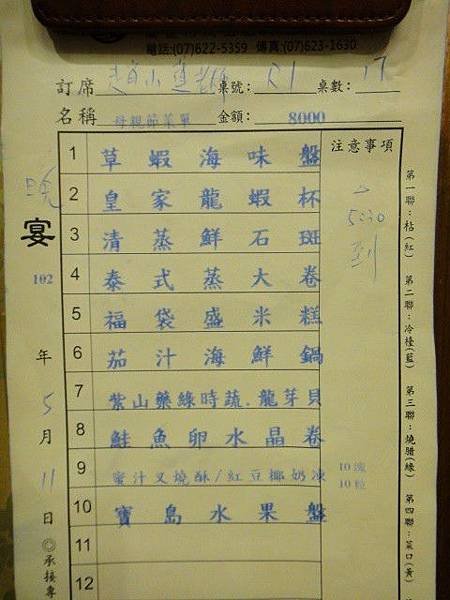 電話:(07)622-5359 傳真:(07)623-1630
訂席 桌號: 桌數: 17
名稱 母親節菜單 金額: 8000
注意事項
1 草蝦海味盤
2 皇家龍蝦杯
3 清蒸鮮石斑
4 泰式蒸大卷
5 福袋盛米糕
6 茄汁海鮮鍋
7 紫山藥綠時蔬.龍芽貝
8 鮭魚卵水晶卷
9 蜜汁叉燒酥/紅豆椰奶凍 10塊 10粒
10 寶島水果盤
11
12
5:30
到
晚
宴
102
年
5
月
11
日
◎承接專
第一聯:枯(紅)
第二聯:冷檯(藍)
第三聯:燒腊(綠)
第四聯:菜口(黃)